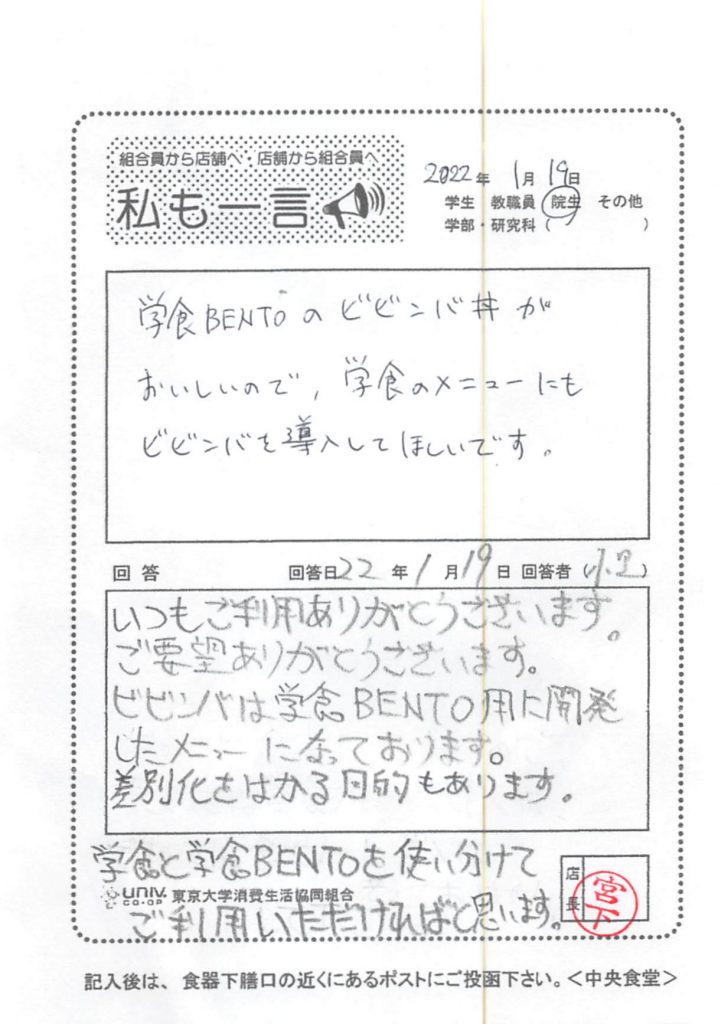 組合員から店舗へ・店舗から組合員へ
私も一言
2022年 1月 19日
学生 教職員 院生 その他
学部・研究科( )
学食BENTOのビビンバ丼が
おいしいので,学食のメニューにも
ビビンバを導入してほしいです。
回答 回答日22年1月19日 回答者( )
いつもご利用ありがとうございます。
ご要望ありがとうございます。
ビビンバは学食BENTO用に開発
したメニューになっております。
差別化をはかる目的もあります。
学食と学食BENTOを使い分けて
univ. CO-OP 東京大学消費生活協同組合
ご利用いただければと思います。
店長
宮下
記入後は、食器下膳口の近くにあるポストにご投函下さい。<中央食堂>